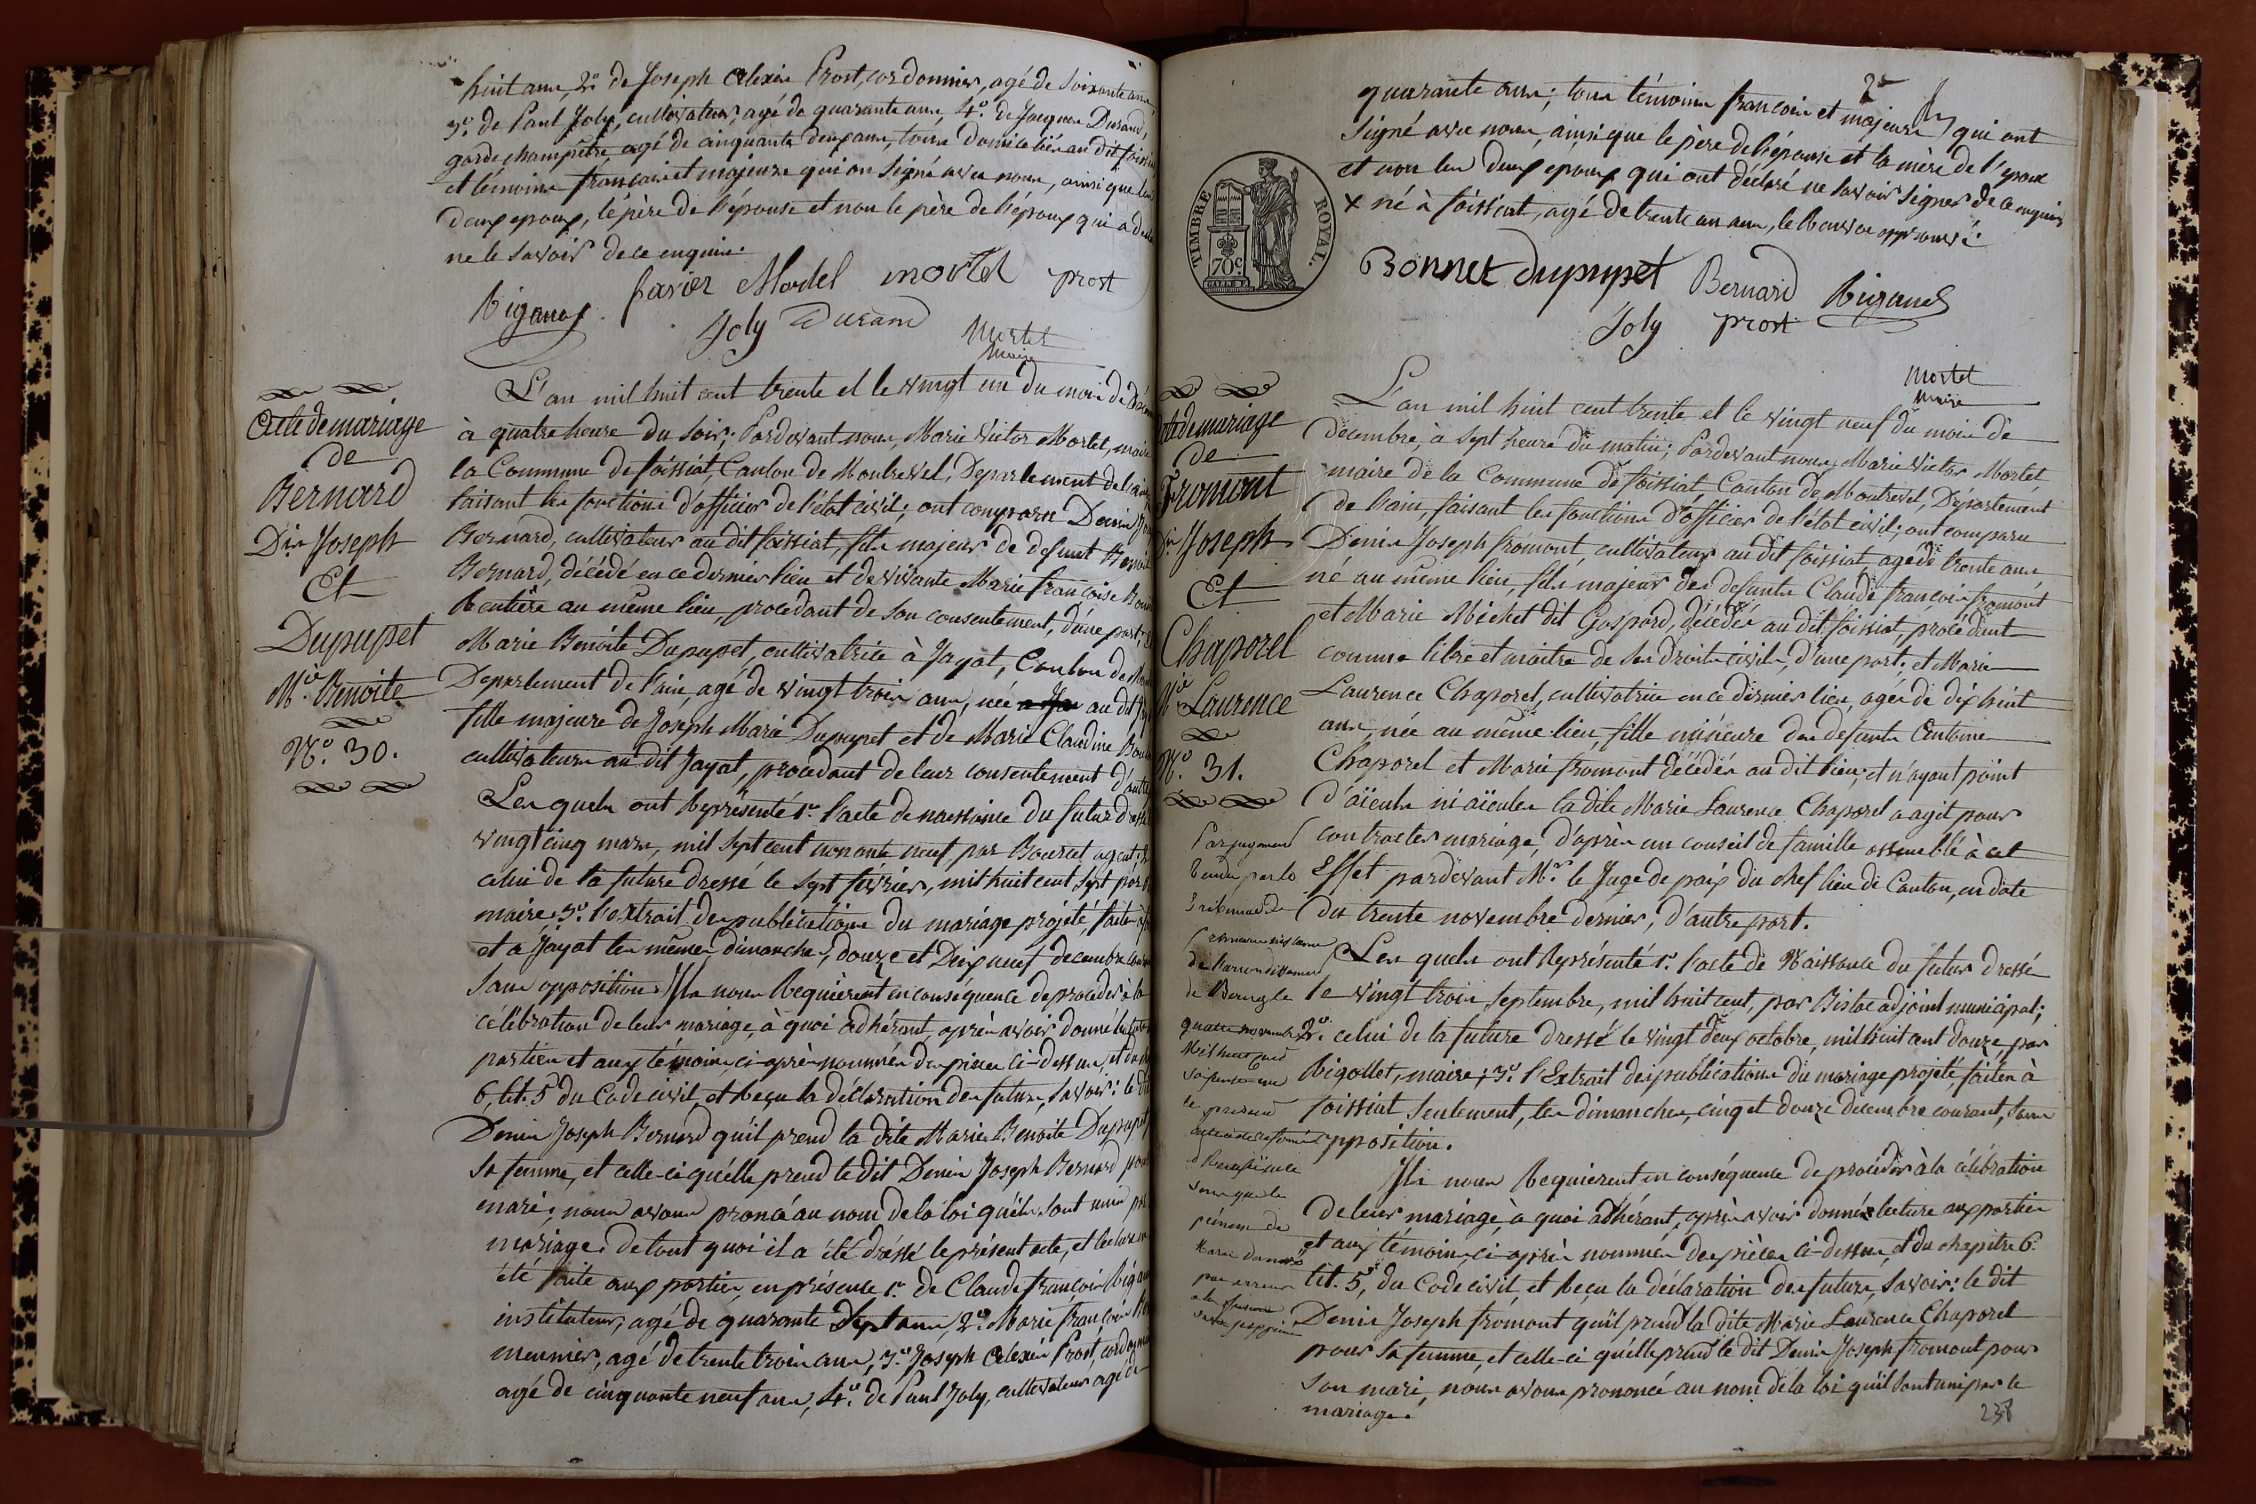 huit ans, 2º de Joseph Alexis Prost, cordonnier, agé de soixante ans
3º. de Paul Joly, cultivateur, agé de quarante ans, 4º. de Jacques Durand,
garde champêtre, agé de cinquante deux ans, tous domiciliés au dit foissiat
et témoins français et majeurs qui on signé avec nous, ainsi que les
deux epoux, le père de l'épouse et non le père de l'époux qui a
ne le savoir de ce enquis.
Rigaud favier Mortel mortel prost
Joly Durand
Mortel
Maire
Acte de mariage
de
Bernard
Dis Joseph
Et
Dupupet
Mie Benoite
Nº. 30.
L'an mil huit cent trente et le vingt un du mois de
à quatre heure du soir; Pardevant nous, Marie Victor Mortel, maire
la Commune de foissiat, Canton de Montrevel, Departement de l'ain
faisant les fonctions d'officier de l'état civil; ont comparu Denis
Bernard, cultivateur au dit foissiat, fils majeur de defunt Benoit
Bernard, décédé en ce dernier lieu et de vivante Marie françoise
Rentière au même lieu, procedant de son consentement, d'une part, et
Marie Benoite Dupupet, cultivatrice à Jayat, Canton de
Departement de l'ain, agé de vingt trois ans, née au dit
fille majeure de Joseph Marie Dupupet et de Marie Claudine
cultivateurs au dit Jayat, procedant de leur consentement d'autre
Les quels ont Représenté 1º. l'acte de naissance du futur dressé
vingt cinq mars, mil sept cent nonante neuf, par Bourcet, agent;
celui de la future dressé le sept fevrier, mil huit cent sept par
maire, 3º. l'extrait des publications du mariage projeté, faites à
et à Jayat les mêmes dimanches, douze et Dix neuf decembre
sans opposition. Ils nous Requièrent en conséquence de proceder à la
célébration de leur mariage, à quoi adhérant, après avoir donné lecture
parties et aux témoins ci-après nommés des pièces ci-dessus, et du
6, tit. 5 du Code civil, et Reçu la déclaration des futurs, savoir: le dit
Denis Joseph Bernard qu'il prend la dite Marie Benoite Dupupet
sa femme, et celle-ci qu'elle prend le dit Denis Joseph Bernard pour
mari; nous avons pronoé au nom de la loi qu'ils sont unis par
mariage. de tout quoi il a été dréssé le présent acte, et lecture
été faite aux parties, en présence 1º. de Claude françois Rigaud
instituteur, agé de quarante sept ans, 2º. Marie françois
meunier, agé de trente trois ans, 3º. Joseph Alexis Prost, cordonnier
agé de cinquante neuf ans, 4º. de Paul Joly, cultivateur agé de
quarante ans; tous témoins français et majeurs qui ont
signé avec nous, ainsi que le père de l'épouse et la mère de l'époux
et non les deux epoux qui ont déclaré ne savoir signer de ce enquis
x né à foissiat, agé de trente un ans, le Renvoi approuvé.
TIMBRE ROYAL.
70c
Bonnet dupupet Bernard Rigaud
Joly prost
Mortel
Maire
Acte de mariage
de
Fromont
Dis Joseph
Et
Chaporel
Mie Laurence
Nº. 31.
L'an mil huit cent trente et le vingt neuf du mois de
Décembre, à sept heure du matin; Pardevant nous, Marie Victor Mortel
maire de la Commune de foissiat, Canton de Montrevel, Département
de l'ain, faisant les fonctions d'officier de l'état civil; ont comparu
Denis Joseph fromont, cultivateur au dit foissiat, agé de trente ans
né au même lieu, fils majeur des defunts Claude françois fromont
et Marie Michet dit Gaspard, décédés au dit foissiat, procédant
comme libre et maitre de ses droits civils, d'une part. et Marie
Laurence Chaporel, cultivatrice en ce dernier lieu, agée de dix huit
ans, née au même lieu, fille mineure des defunts Antoine
Chaporel et Marie fromont décédés au dit lieu; et n'ayant point
d'aïeuls ni aïeules la dite Marie Laurence Chaporel a agit pour
contracter mariage, d'après un conseil de famille assemblé à cet
Effet pardevant Mr. le Juge de paix du chef lieu de Canton, en date
du trente novembre dernier, d'autre part.
Les quels ont Représenté 1º. l'acte de Naissance du futur dressé
le vingt trois septembre, mil huit cent, par adjoint municipal;
2º. celui de la future dressé le vingt deux octobre, mil huit cent douze, par
Rigollet, maire; 3º. l'Extrait des publications du mariage projeté, faites à
foissiat seulement, les dimanches, cinq et douze décembre courant, sans
opposition.
Ils nous Requièrent en conséquence de procéder à la célébration
de leur mariage, à quoi adhérant, après avoir donné lecture aux parties
et aux témoins, ci-après nommés des pièces ci-dessus, et du chapitre 6.
tit. 5, du Code civil, et Reçu la déclaration des futurs, savoir: le dit
Denis Joseph fromont qu'il prend la dite Marie Laurence Chaporel
pour sa femme, et celle-ci qu'elle prend le dit Denis Joseph fromont pour
son mari, nous avons prononcé au nom de la loi qu'ils sont unis par le
mariage.
Par jugement
Rendu par le
Tribunal de
première instance
de l'arrondissement
de Bourg le
quatre novembre
Mil huit cent
soixante
le présent
acte a été réformé
sens que le
prénom de
Marie donné
par erreur
à la
238